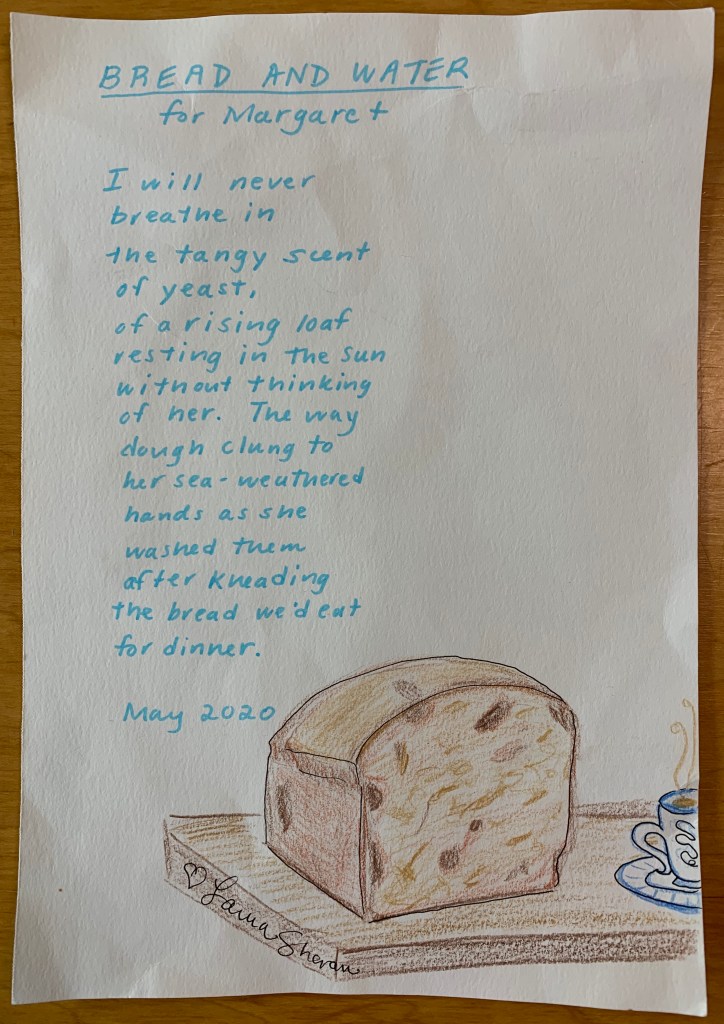 BREAD AND WATER
for Margaret
I will never
breathe in
the tangy scent
of yeast,
of a rising loaf
resting in the sun
without thinking
of her. The way
dough clung to
her sea-weathered
hands as she
washed them
after kneading
the bread we'd eat
for dinner.
May 2020
♡ Laura